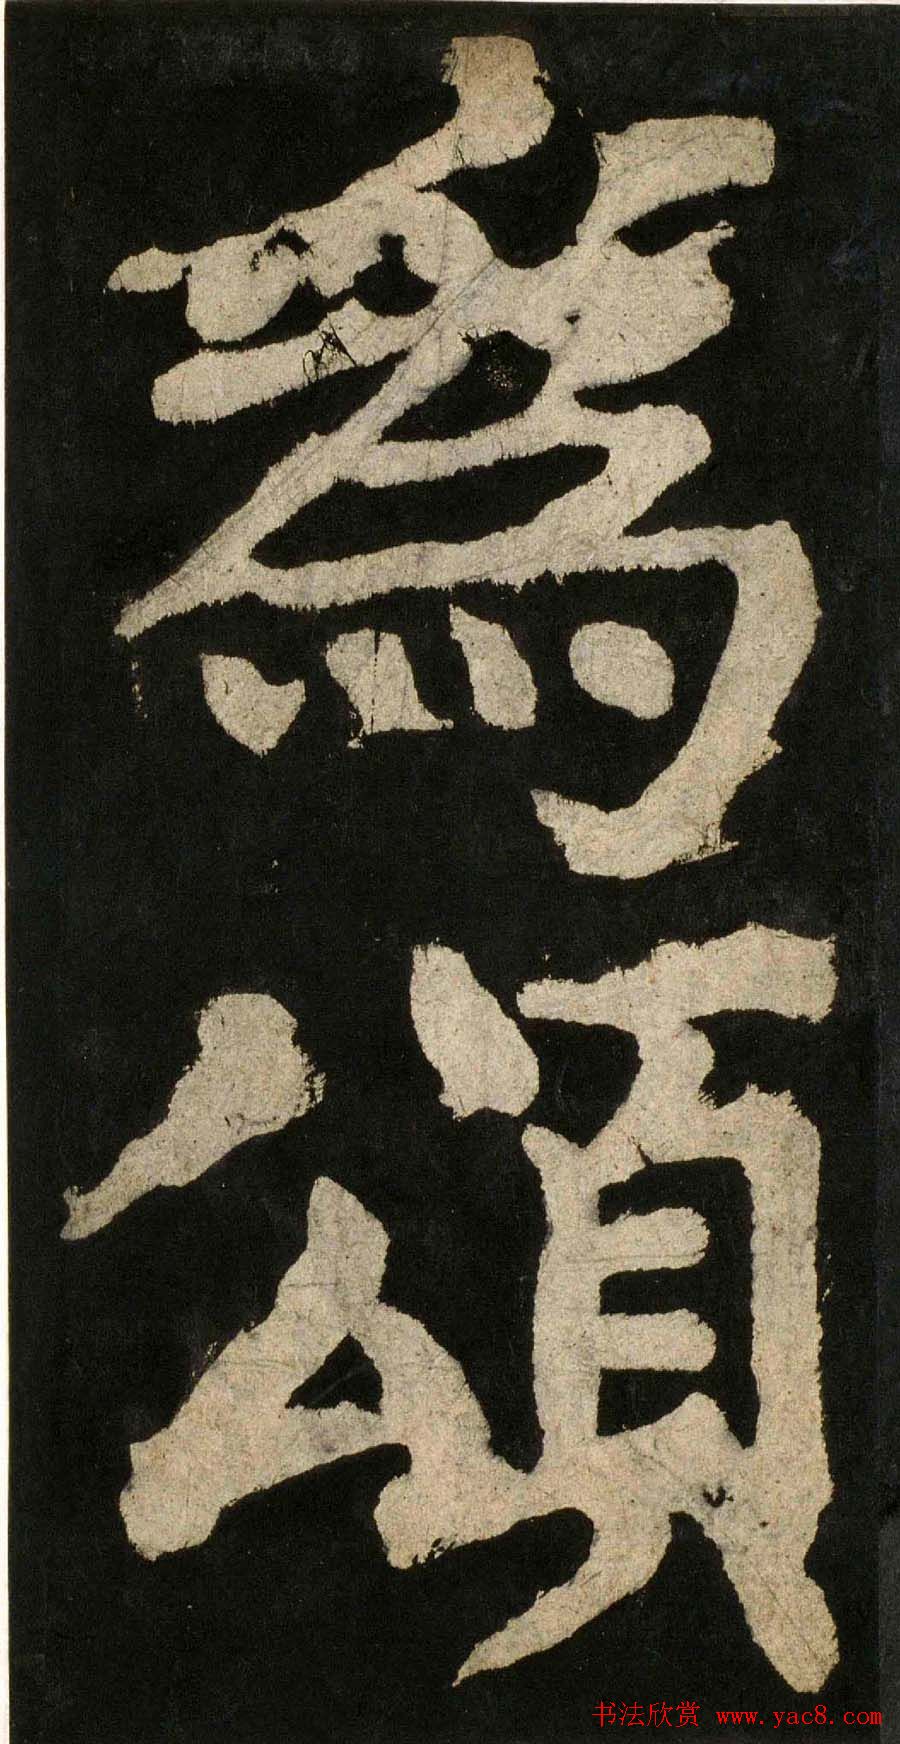 為
頌
书法欣赏 www.yac8.com